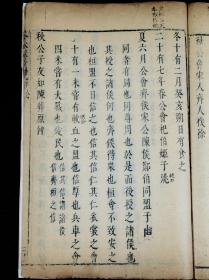 秋公會宋人齊人伐徐
冬十有二月癸亥朔日有食之
二十有七年春公會杞伯姬于洮
夏六月公會齊侯宋公陳侯鄭伯同盟于幽
同者有同也同尊周也於是而後授之諸侯也
其授之諸侯何也齊侯得衆也桓會不致安之
也桓盟不日信之也信其信仁其仁衣裳之會
十有一未嘗有歃血之盟也信厚也兵車之會
四未嘗有大戰也愛民也
秋公子友如陳葬原仲